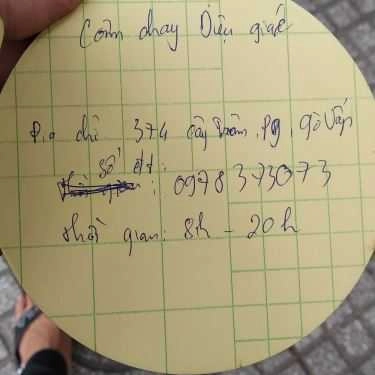 Cơm chay Diệu giác
Địa chỉ 374 Cây Trâm, P9, gò Vấp
Số đt: 0978373073
thời gian: 8h - 20h